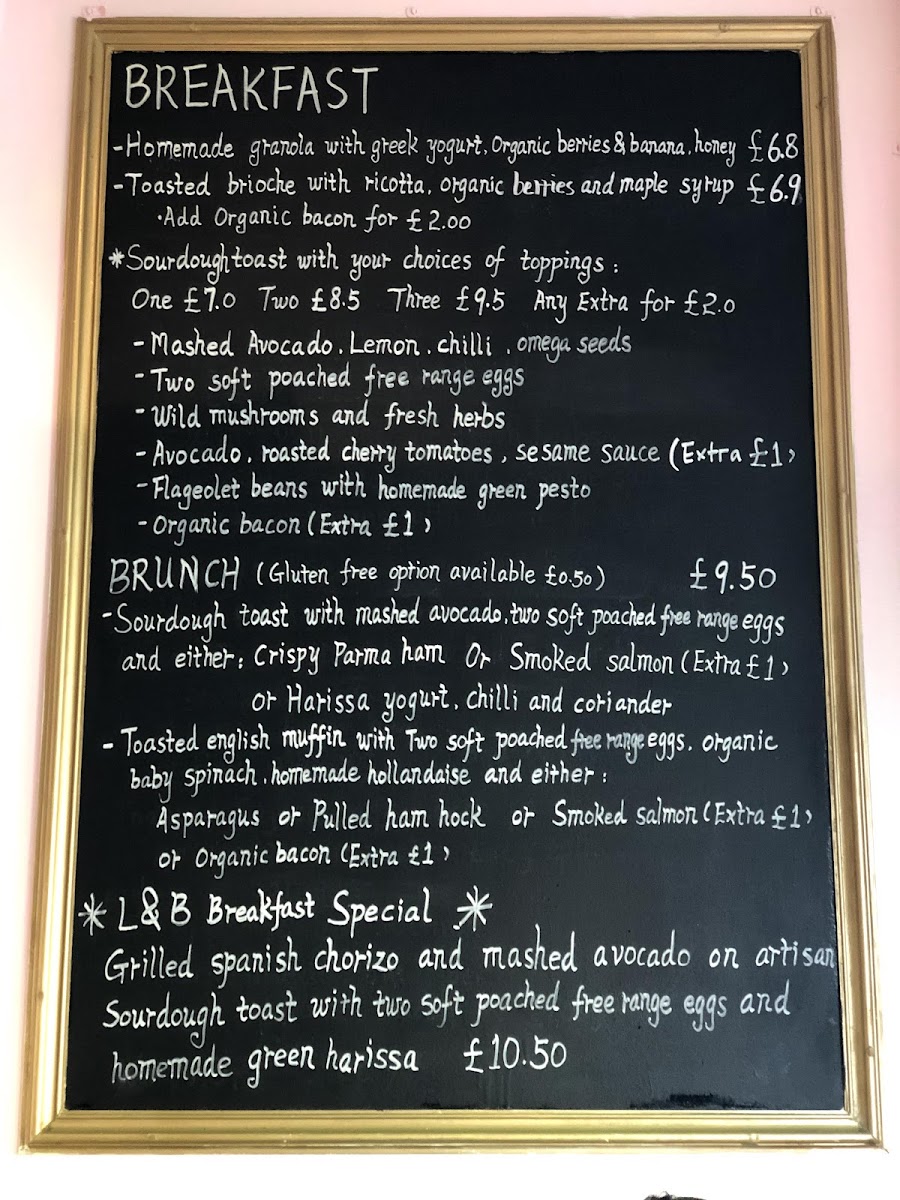 BREAKFAST
-Homemade granola with greek yogurt, Organic berries & banana, honey £6.8
-Toasted brioche with ricotta, organic berries and maple syrup £6.9
·Add Organic bacon for £2.00
*Sourdough toast with your choices of toppings:
One £7.0 Two £8.5 Three £9.5 Any Extra for £2.0
-Mashed Avocado, Lemon, chilli, omega seeds
-Two soft poached free range eggs
-Wild mushrooms and fresh herbs
-Avocado, roasted cherry tomatoes, sesame sauce (Extra £1)
-Flageolet beans with homemade green pesto
-Organic bacon (Extra £1)
BRUNCH (Gluten free option available £0.50) £9.50
-Sourdough toast with mashed avocado, two soft poached free range eggs
and either: Crispy Parma ham Or Smoked salmon (Extra £1)
or Harissa yogurt, chilli and coriander
-Toasted english muffin with Two soft poached free range eggs, organic
baby spinach, homemade hollandaise and either:
Asparagus or Pulled ham hock or Smoked salmon (Extra £1)
or Organic bacon (Extra £1)
* L&B Breakfast Special *
Grilled spanish chorizo and mashed avocado on artisan
Sourdough toast with two soft poached free range eggs and
homemade green harissa £10.50